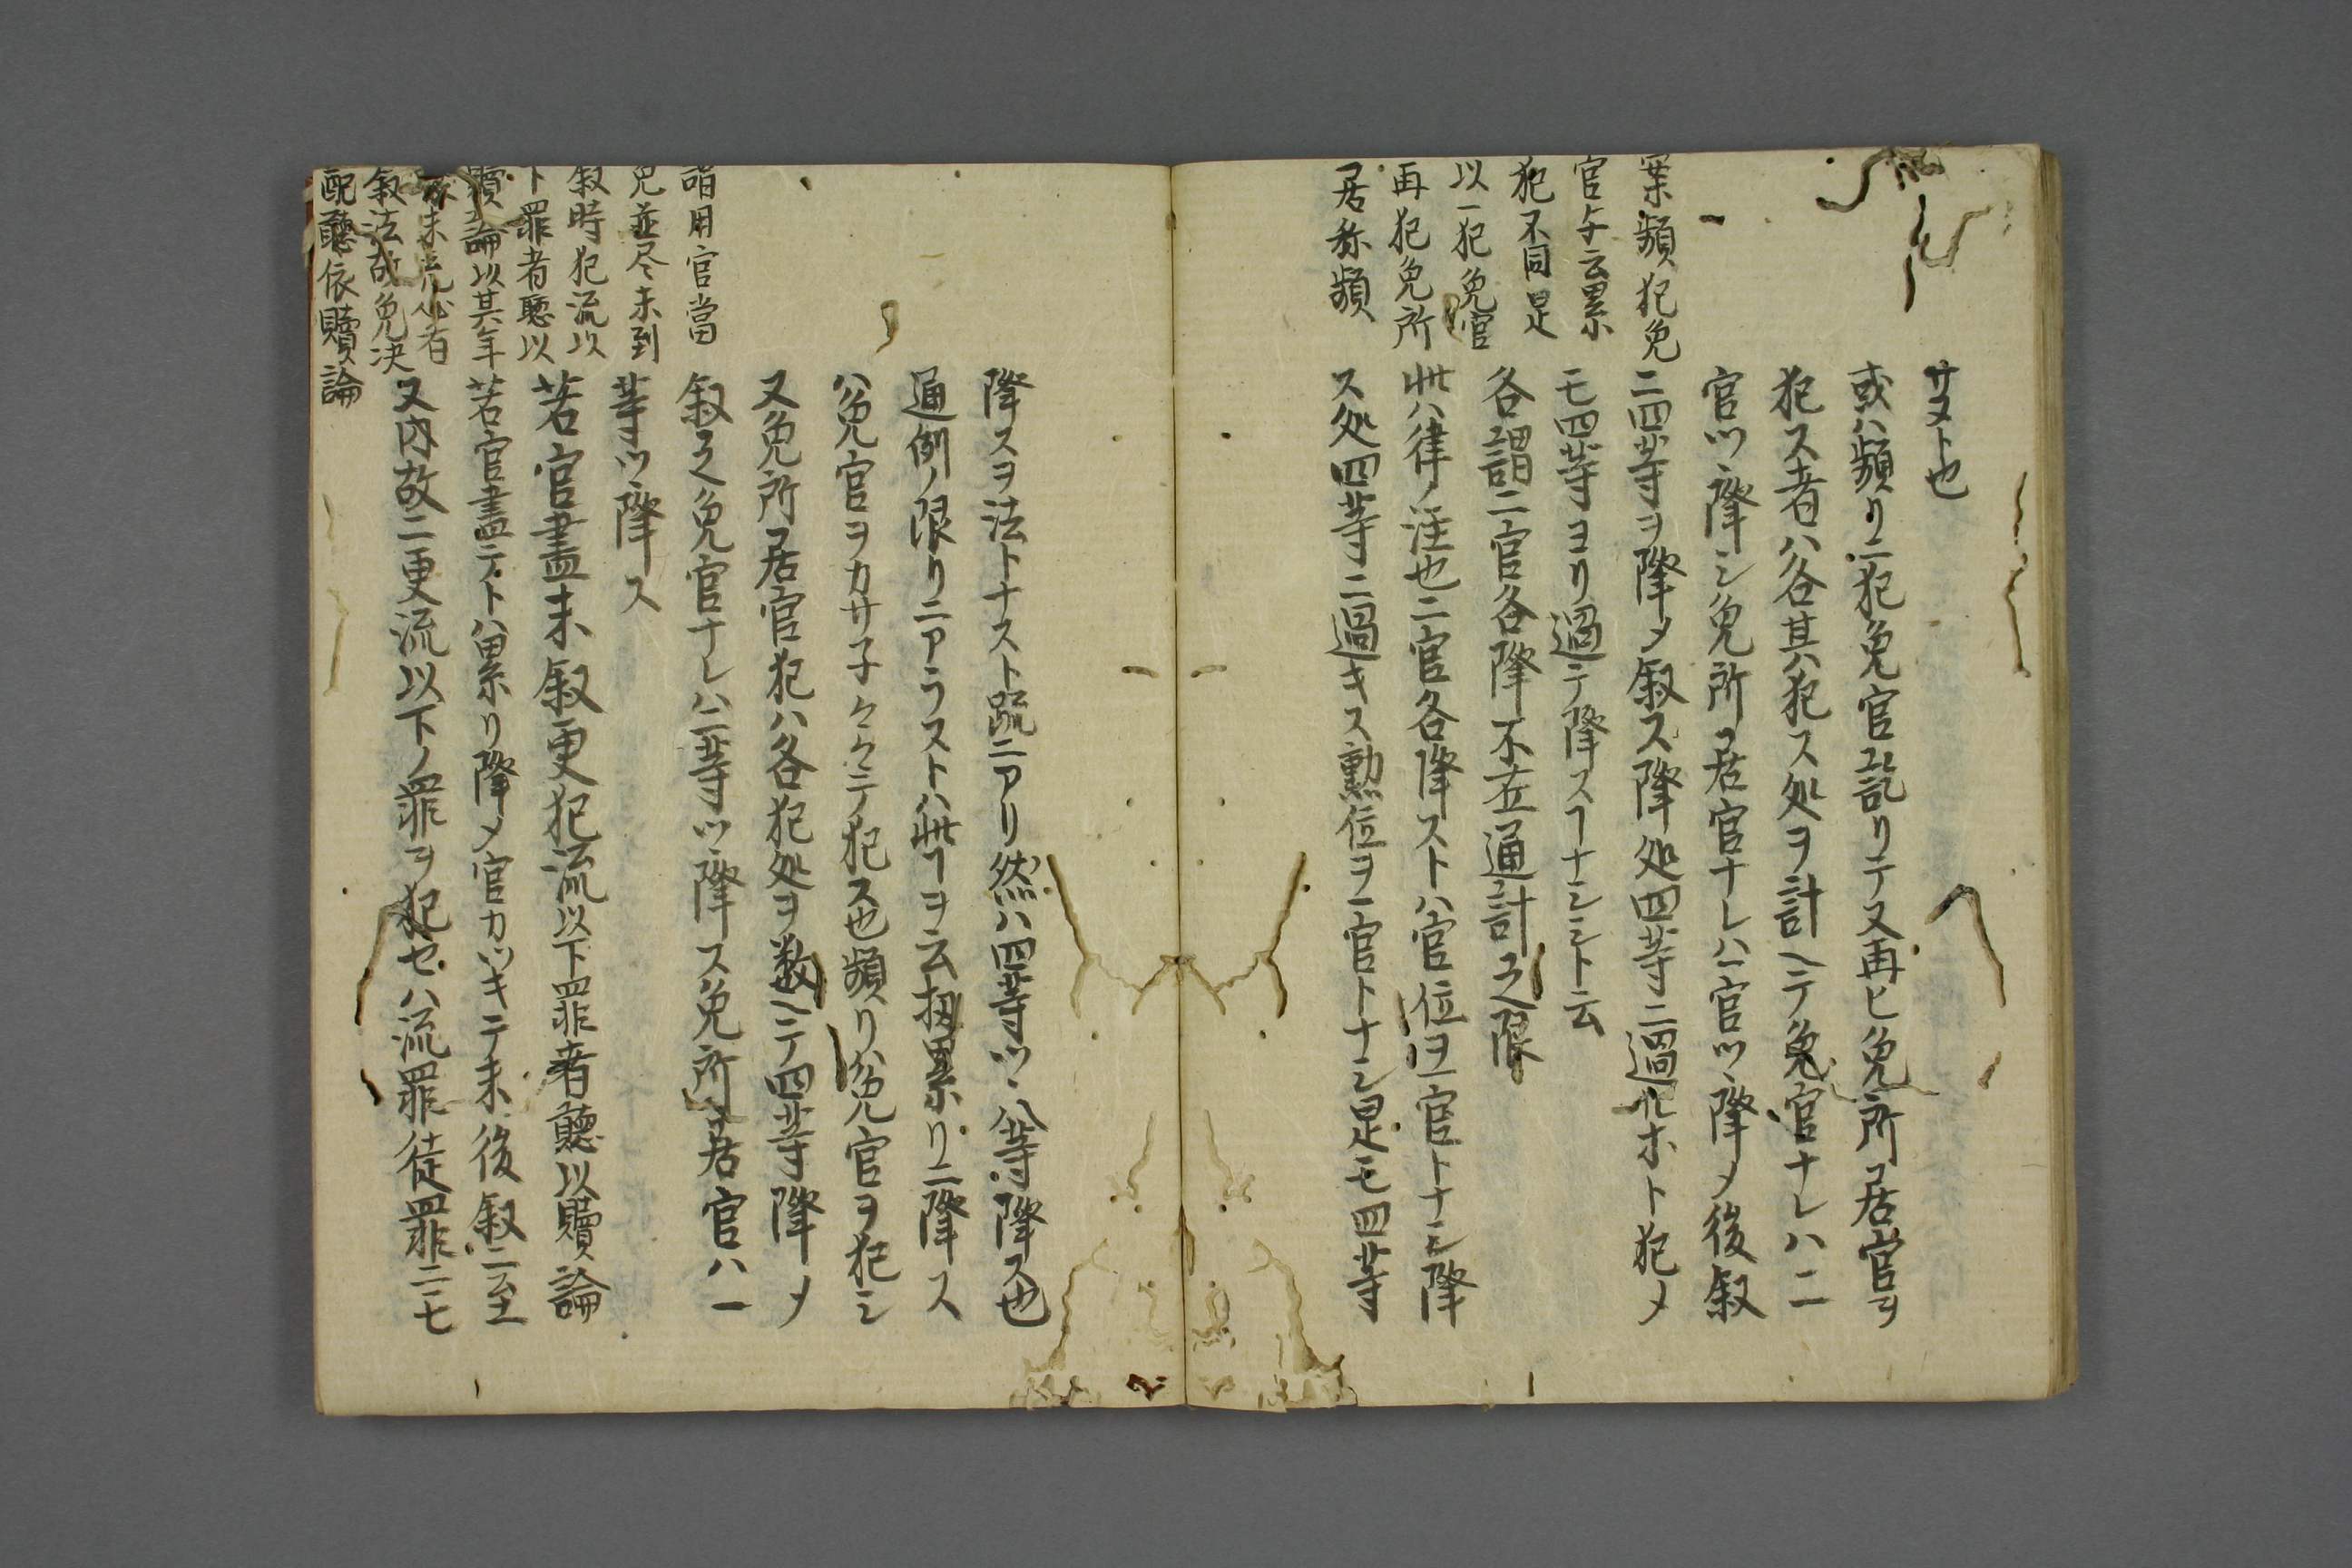 サヌト也
或ハ頻リニ犯免官訖リテ又再ヒ免所居官ヲ
犯ス者ハ各其犯ス処ヲ計ヘテ免官ナレハ二
官ツヽ降シ免所居官ナレハ一官ツヽ降メ後叙
ニ四等ヲ降メ叙ス降処四等ニ過ルホト犯メ
モ四等ヨリ過テ降スヿナシト云
各謂二官各降不在通計之限
此ハ律ノ注也二官各降ストハ官位ヲ一官トナシ降
ス処四等ニ過キス勲位ヲ一官トナシ是モ四等
案頻犯免
官与云累
犯不同是
以一犯免官
再犯免所
居称頻
降スヲ法トナスト疏ニアリ然ハ四等ツヽ八等降ス也
通例ノ限リニアラストハ此ヿヲ云扨累リニ降ス
ハ免官ヲカサ子〳〵テ犯ス也頻リハ免官ヲ犯シ
又免所居官犯ハ各犯処ヲ数ヘテ四等降メ
叙之免官ナレハ二等ツヽ降ス免所居官ハ一
等ツヽ降ス
若官盡未叙更犯流以下罪者聽以贖論
若官盡テト八累リ降メ官カツキテ未後叙ニ至
又内故ニ更流以下ノ罪ヲ犯セハ流罪徒罪ニ七
謂用官當
免並尽未到
叙時犯流以
下罪者聴以
贖論以其年
未充必有
叙法故免决
配聽依贖論